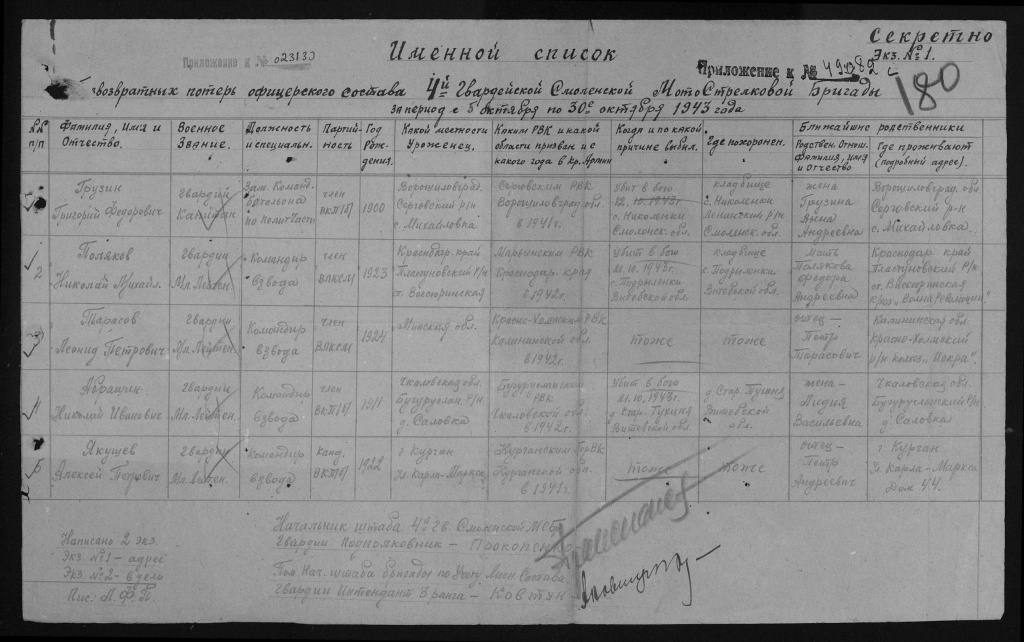 Секретно
Экз. №1.
Приложение к № 023133
Именной список
Приложение к № 49382 с
180
безвозвратных потерь офицерского состава 4й Гвардейской Смоленской МотоСтрелковой Бригады
за период с 5 октября по 30е октября 1943 года
№№ п/п
Фамилия, Имя и Отчество.
Военное Звание.
Должность и специальн.
Партий- ность
Год Рож- дения.
Какой местности Уроженец.
Каким РВК и какой области призван и с какого года в Кр. Армии
Когда и по какой причине выбыл.
Где похоронен.
Ближайшие родственники
Родствен. Отнош. Фамилия, имя и отчество
Где проживают (подробный адрес).
1
Грузин
Григорий Федорович
Гвардии
Капитан
Зам. Команд.
батальона
по полит части
член
ВКП(б)
1900
Ворошиловград.
Сорговский р/н
с. Михайловка
Сорговским РВК
Ворошиловград обл
в 1941г.
Убит в бою
12.10.1943г.
с. Николенки
Смоленск. обл.
кладбище
с. Николенки
Ленинский р/н
Смоленск. обл.
жена
Грузина
Анна
Андреевна
Ворошиловград. обл
Сорговский р-н
с. Михайловка.
2
Поляков
Николай Михайл.
Гвардии
Мл. Лейтен.
Командир
Взвода
член
ВЛКСМ
1923
Краснодар. край
Пластуновский р/н
ст. Васюринская
Марьинским РВК
Краснодар. края
в 1942г.
Убит в бою
11.10.1943г.
с. Подрыленки
Витебской обл.
кладбище
с. Подрылинки
Витебской обл.
Мать
Полякова
Федора
Андреевна
Краснодар. край
Пластуновский р/н
ст. Васюринская
3
Тарасов
Леонид Петрович
Гвардии
Мл. Лейтен.
Командир
взвода
член
ВЛКСМ
1924
Минская обл.
Красно-Холмским РВК
Калининской обл.
в 1942г.
тоже
тоже
отец —
Петр
Тарасович
Калининская обл.
Красно-Холмский
р/н колхоз „Искра".
4
Абрашин
Николай Иванович
Гвардии
Мл. Лейтен.
Командир
взвода
член
ВКП(б)
1911
Чкаловская обл.
Бугуруслан. р/н.
д. Саловка
Бугурусланским
РВК
Чкаловской обл.
в 1942г.
Убит в бою
11.10.1943г.
д. Стар. Тухиня
Витебской обл.
д. Стар. Тухиня
Витебской
обл.
жена —
Лидия
Васильевна
Чкаловская обл
Бугурусланский р/н
д. Саловка
5
Якушев
Алексей Петрович
Гвардии
Мл. Лейтен.
Командир
взвода
канд.
ВКП(б)
1922
г. Курган
Ул. Карла-Маркса
Курганским ГорВК
Курганской обл.
в 1941г.
тоже
тоже
отец —
Петр
Андреевич
г. Курган
Ул. Карла-Маркса
Дом 44.
Начальник штаба 4й Гв. Смоленской МСБр
Гвардии Подполковник — Прокопенко
Пом. Нач. штаба бригады по Учету Личн. Состава
Гвардии Интендант 3 ранга — Ковтун —
Написано 2 экз.
Экз. №1 — адрес
Экз. №2 — в дело
Пис. Л. Ф. П.